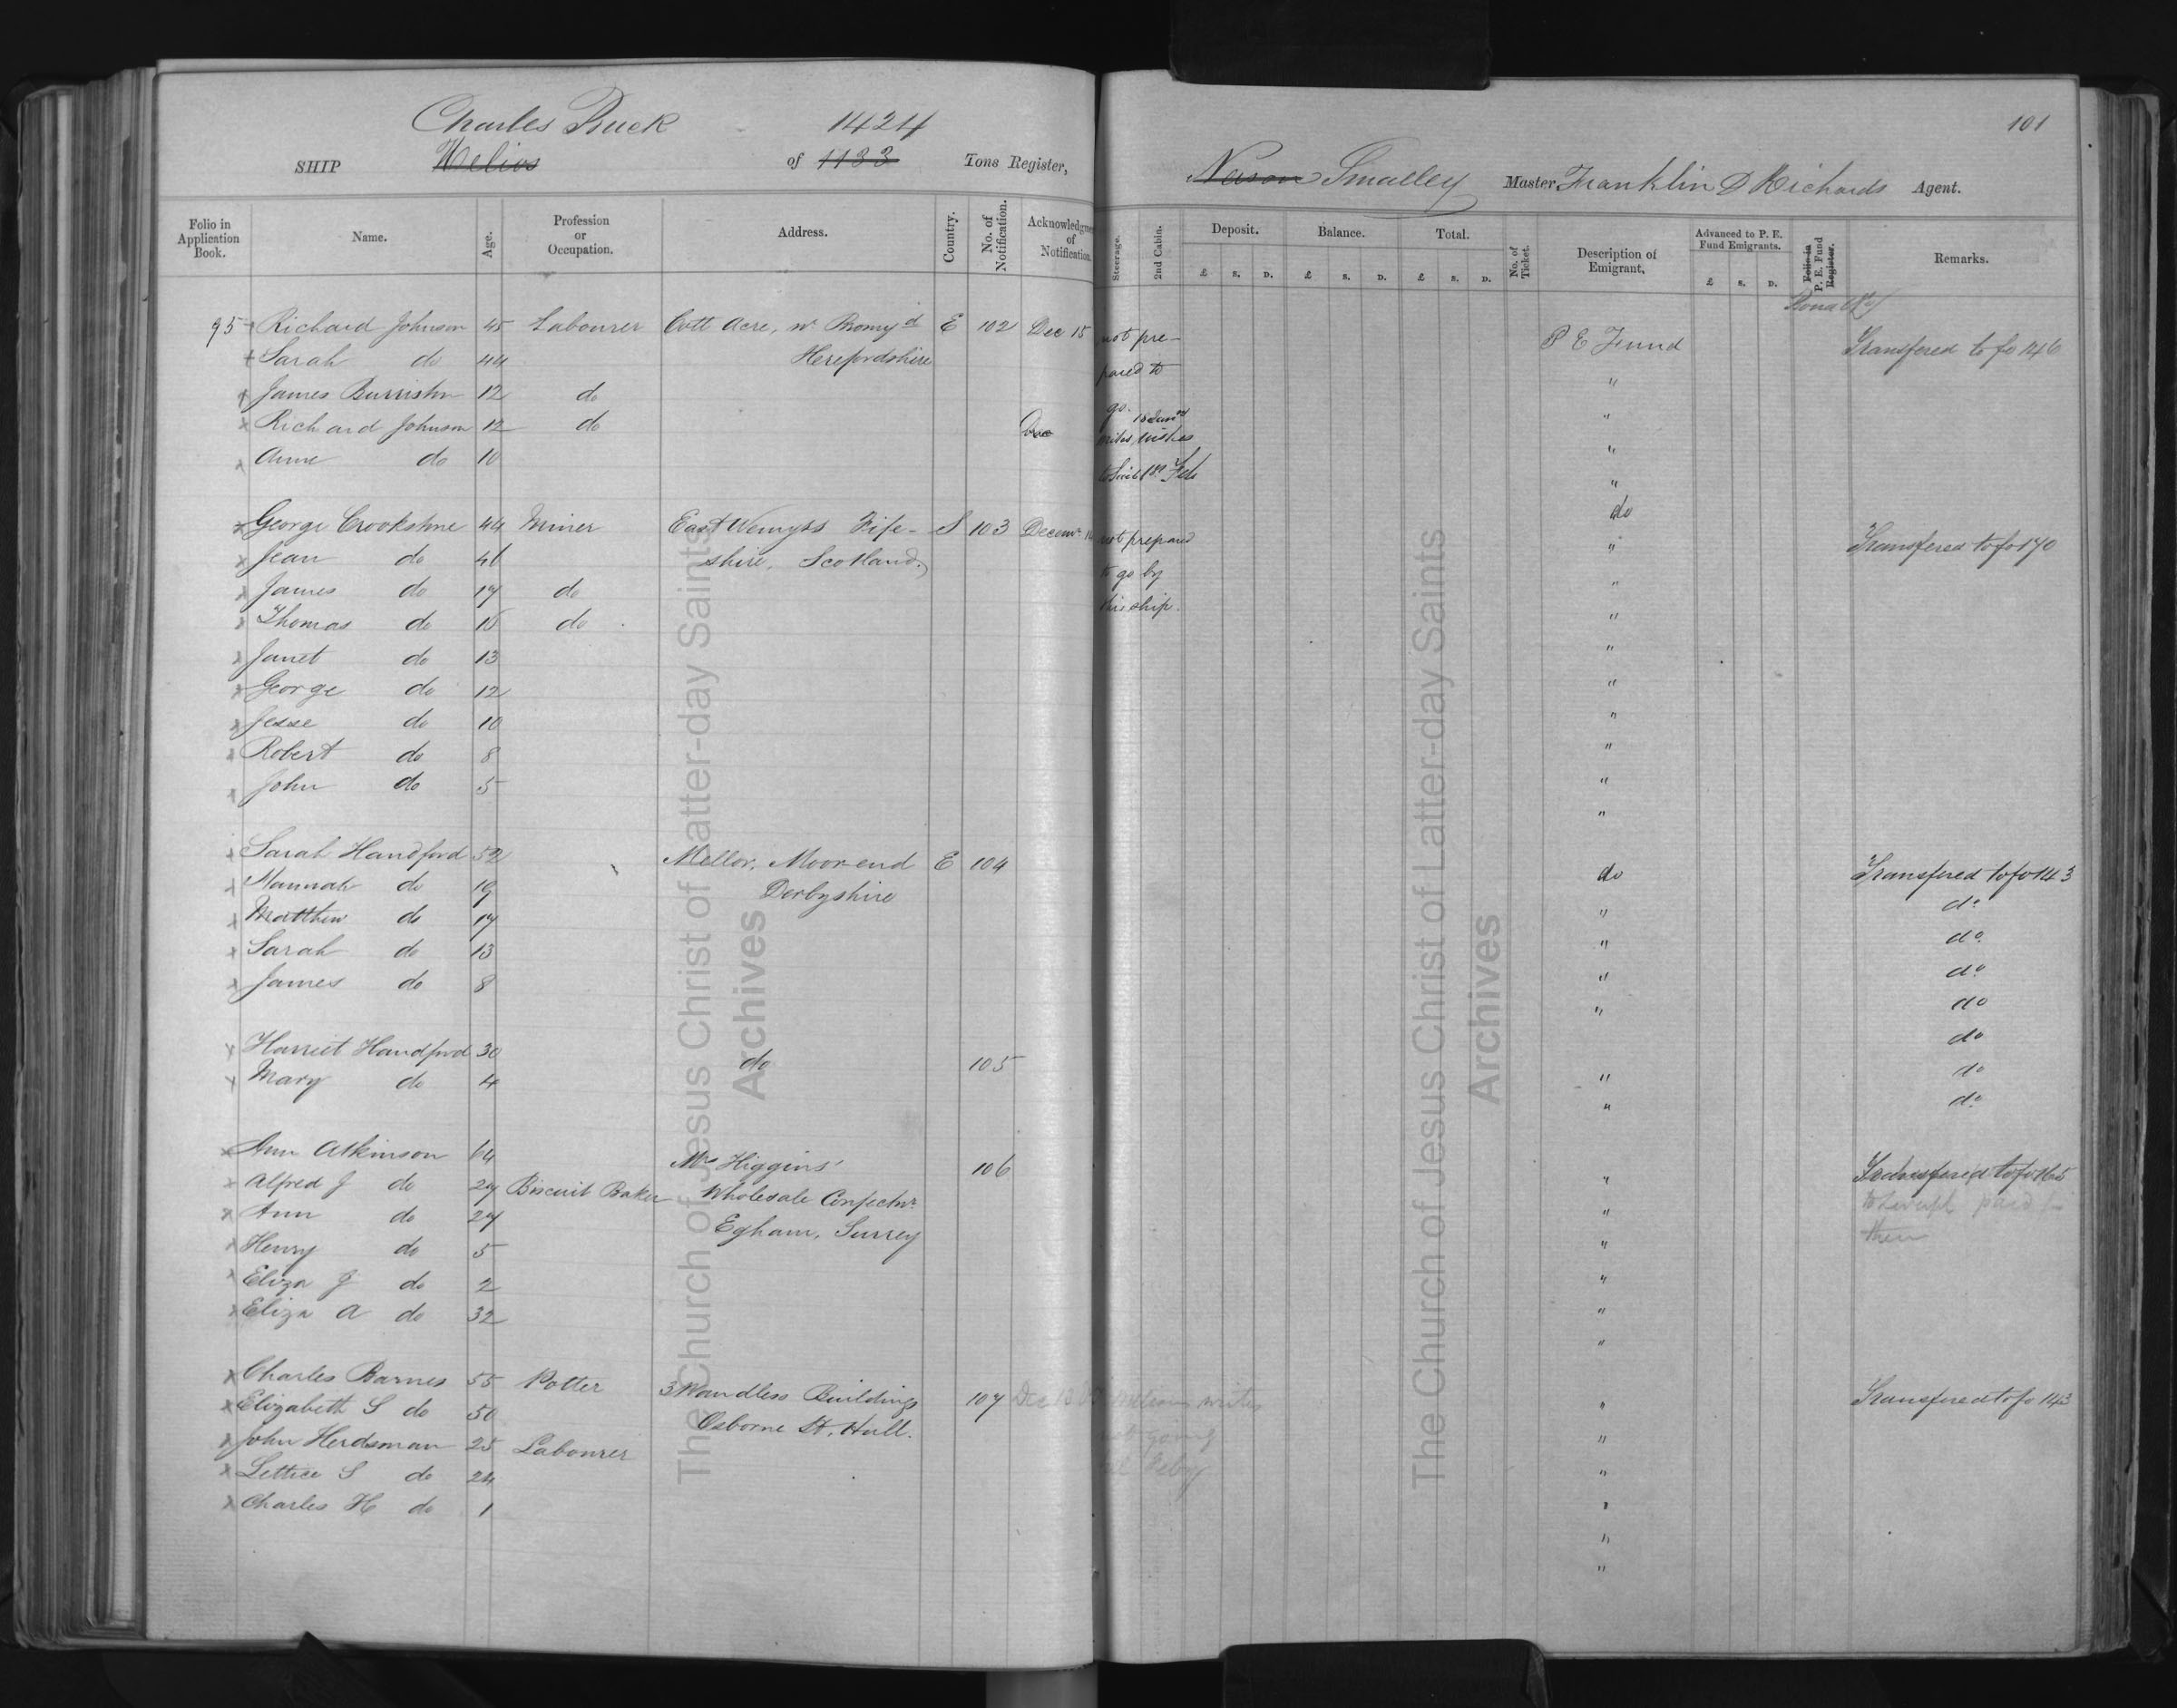 Charles Buck 1424
SHIP Helios of 1133 Tons Register,
Nason Smalley Master Franklin D Richards Agent.
101
Folio in Application Book. Name. Age. Profession or Occupation. Address. Country. No. of Notification. Acknowledgment of Notification.
Steerage. 2nd Cabin. Deposit. Balance. Total. No. of Ticket. Description of Emigrant. Advanced to P. E. Fund Emigrants. Folio in P. E. Fund Register. Remarks.
£ s. D. £ s. D. £ s. D. £ s. D.
95 Richard Johnson 45 Labourer Cott Acre, nr Bromyd E 102 Dec 15 not pre- P E Fund Transfered to fo 146
Sarah do 44 Herefordshire pared to "
James 12 do go. 18 "
Richard Johnson 12 do Dec writes, wishes "
Anne do 10 Feb "
George Crookstone 44 Miner East Wemyss Fife- S 103 not prepared do Transfered to fo 170
Jean do 46 shire, Scotland. to go by "
James do 17 do this ship. "
Thomas do 15 do "
Janet do 13 "
George do 12 "
Jesse do 10 "
Robert do 8 "
John do 5 "
"
Sarah Handford 52 Mellor, Moor-end E 104 do Transfered to fo 143
Hannah do 19 Derbyshire " do
Matthew do 17 " do
Sarah do 13 " do
James do 8 " do
Harriet Handford 30 do 105 " do
Mary do 4 " do
do
Ann Atkinson 64 Mrs Higgins' 106 " Transfered to fo 165
Alfred J do 27 Biscuit Baker Wholesale Confectnr " paid
Ann do 27 Egham, Surrey " then
Henry do 5 "
Eliza J do 2 "
Eliza A do 32 "
Charles Barnes 55 Potter 3 Handless Buildings 107 Dec 13 writes " Transfered to fo 143
Elizabeth S do 50 Osborne St. Hull. going "
John Herdsman 25 Labourer "
Lettice S do 24 "
Charles H do 1 "
"
The Church of Jesus Christ of Latter-day Saints
Archives
The Church of Jesus Christ of Latter-day Saints
Archives